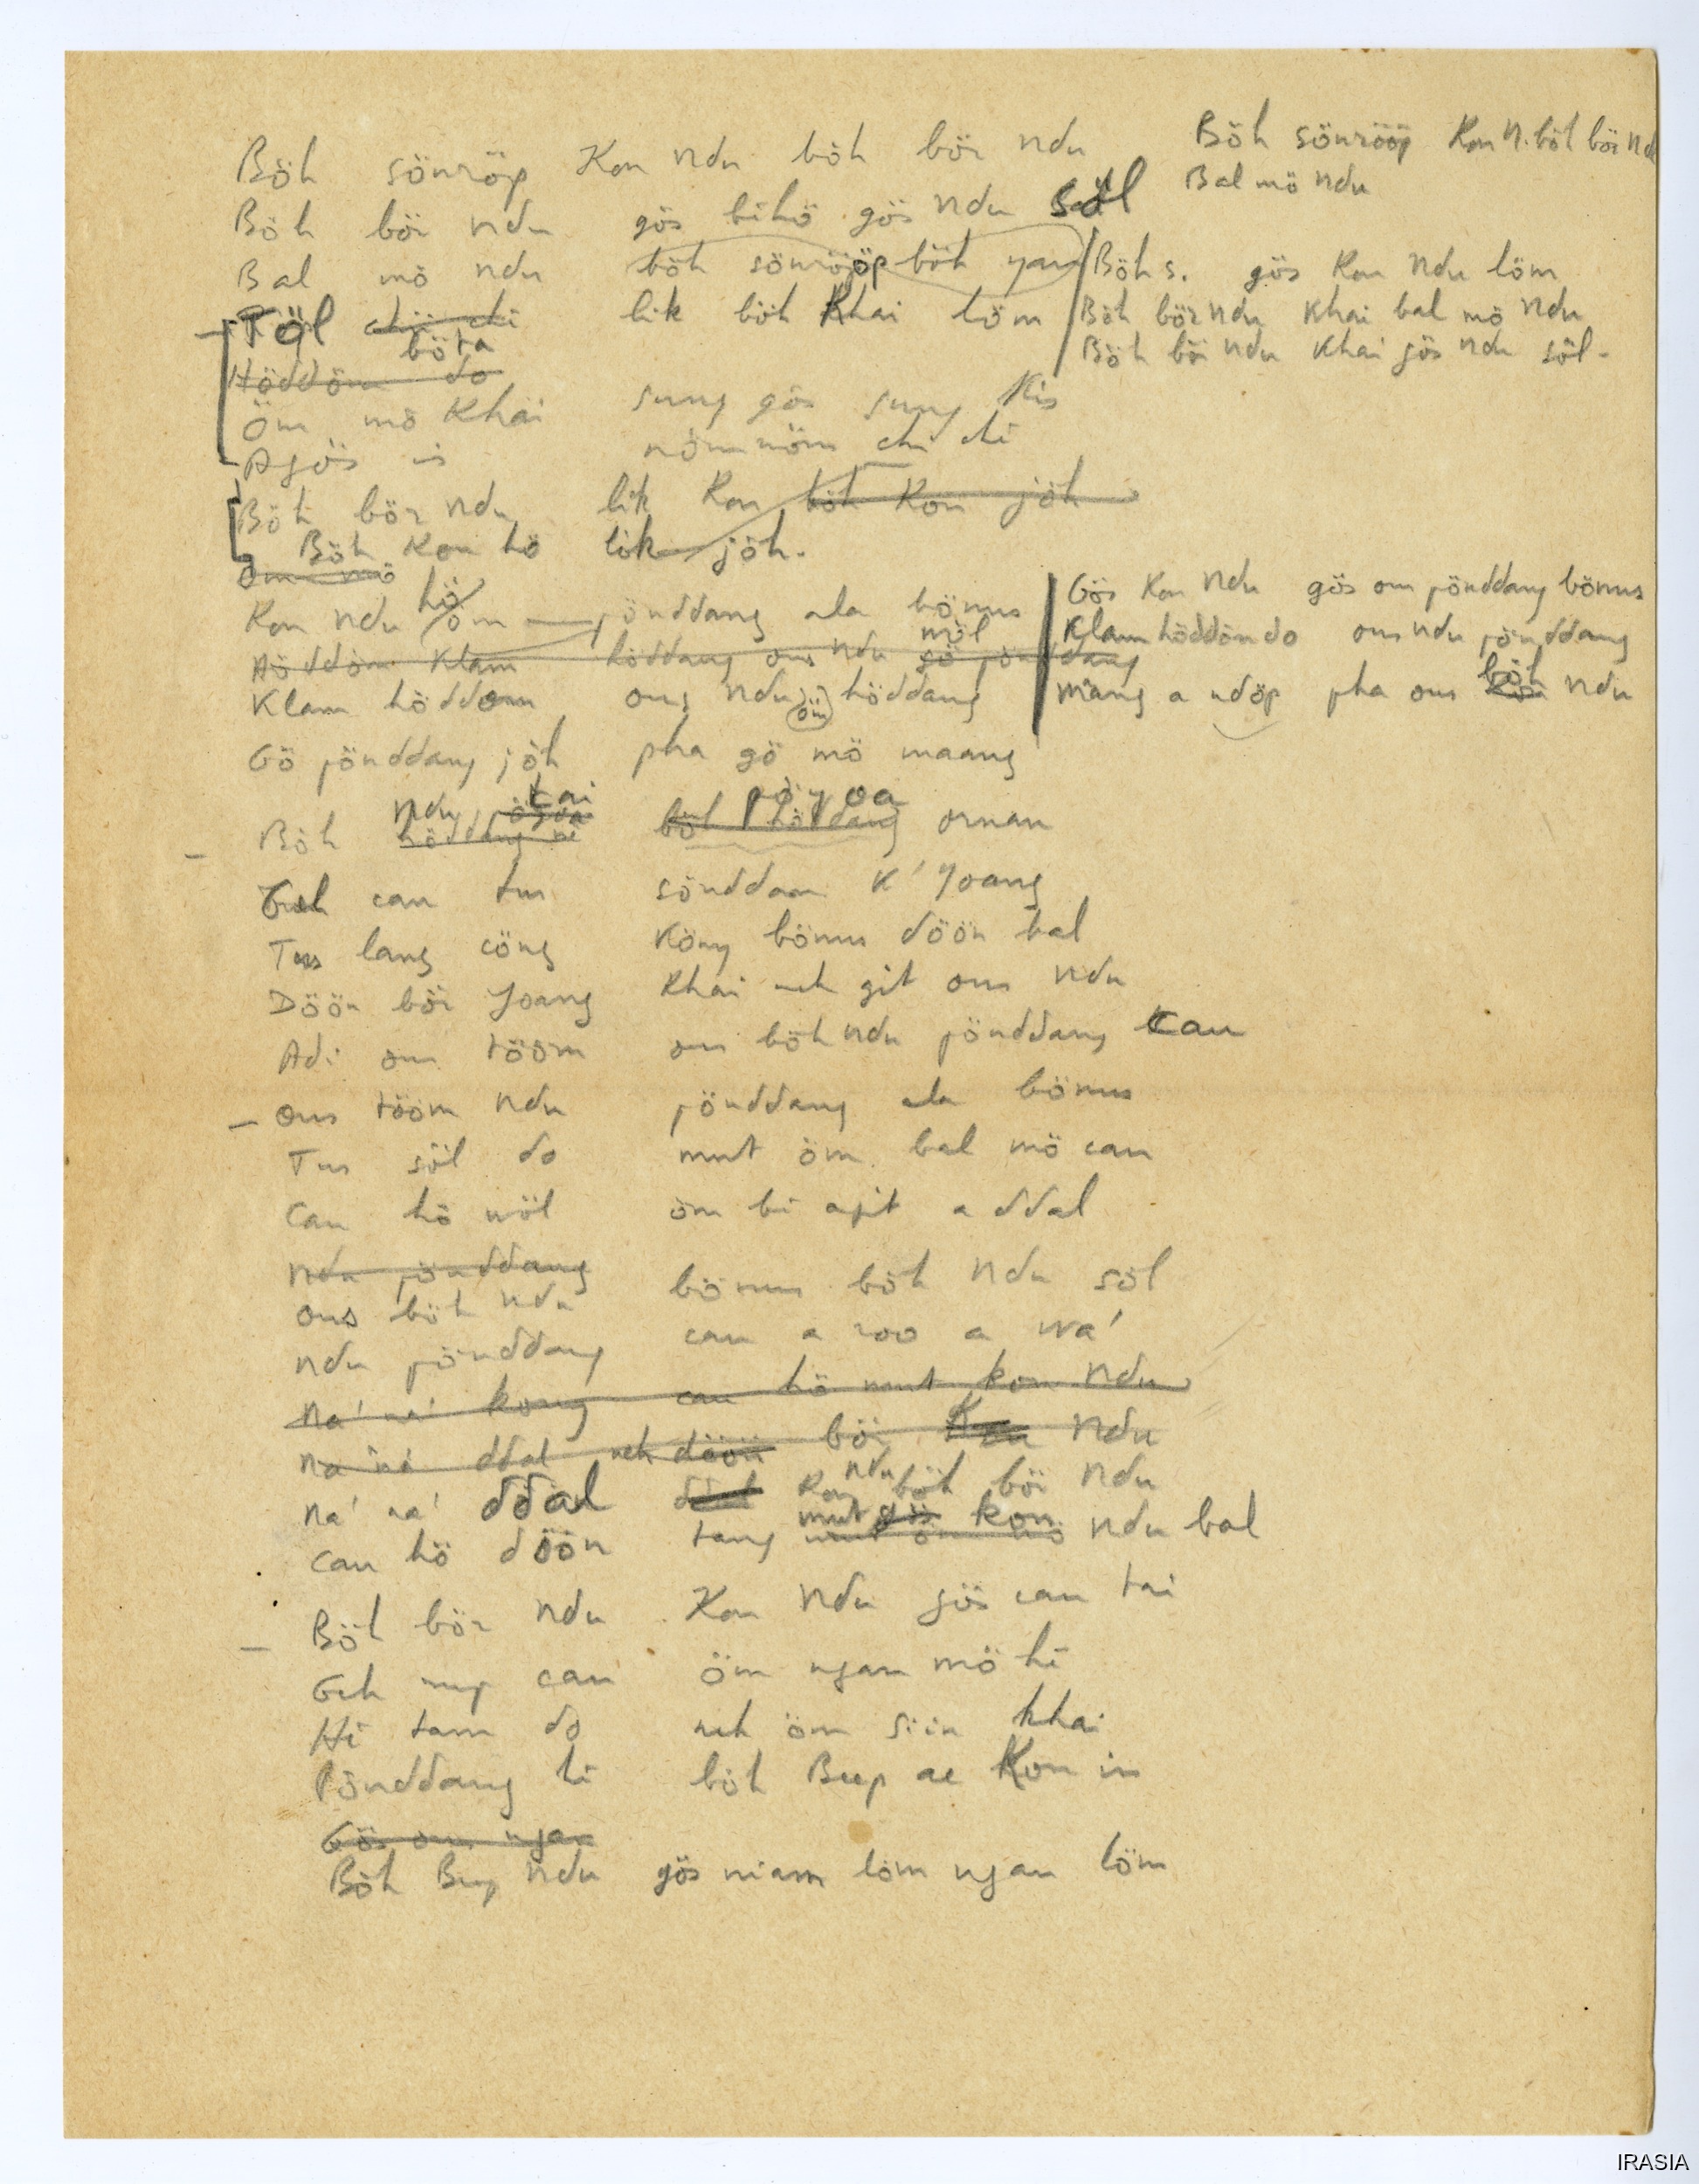 Böh sönröp Kon Ndu böh bör ndu
Böh bör ndu gös bihö gös Ndu söl
Bal mö ndu böh sönrööp böh yau
Töl chi chi lik böh Khai löm
böta
Höddöm do
Öm mö Khai sung gös sung Kis
Agös is nömnöm chi chi
Böh bör ndu lik Kon böh Kon jöh
Böh Kon hö lik jöh.
Om mö
Kon ndu hö öm pönddang ala bönus
Höddöm Klam höddang ous ndu möl gö pönddang
Klam höddom ous ndu öm höddang
Gö pönddang jöh pha gö mö maang
ndu pösda tai pöyoa
Böh höddang ni böh höddang ornan
Geh can tus sönddan K'Yoang
Tus lang cöng Köny bönus döön bal
Döön bör Yoang Khai neh git ous ndu
Adi om tööm ou böh ndu pönddang can
ous tööm ndu pönddang ala bönus
Tus söl do mut öm bal mö can
Can hö wöl öm bi apit a ddal
Ndu pönddang
ous böh ndu bönus böh Ndu söl
ndu pönddang can a roo a wa'
Na' na' kong can hö mut kon Ndu
na' na' ddal neh döön bör Kon Ndu
ndu
na' na' ddal ddal Kon böh bör Ndu
mut gös kon
can hö döön tang mut öm mö ndu bal
Böh bör ndu Kon Ndu gös can tai
Geh nup can öm ngan mö hi
Hi tam do neh öm siin khai
Pönddang hi böh Beep ae Kon in
Gös om ngan
Böh Bup ndu gös niam löm ngan löm
Böh sönrööp Kon N. böh bör Ndu
Bal mö ndu
Böh s. gös Kon Ndu löm
Böh bör ndu Khai bal mö Ndu
Böh bör ndu Khai gös ndu söl.
Gös Kon Ndu gös om pönddang bönus
Klam höddöm do ous ndu pönddang
böh
mang a ndöp pha ous Kon Ndu
IRASIA